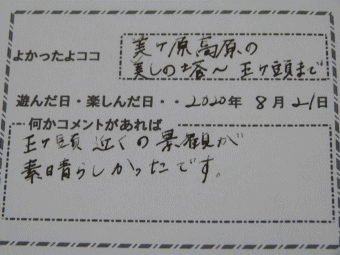 よかったよココ
美ヶ原高原の
美しの塔～王ヶ頭まで
遊んだ日・楽しんだ日・・2020年 8月21日
何かコメントがあれば
王ヶ頭近くの景観が
素晴らしかったです。